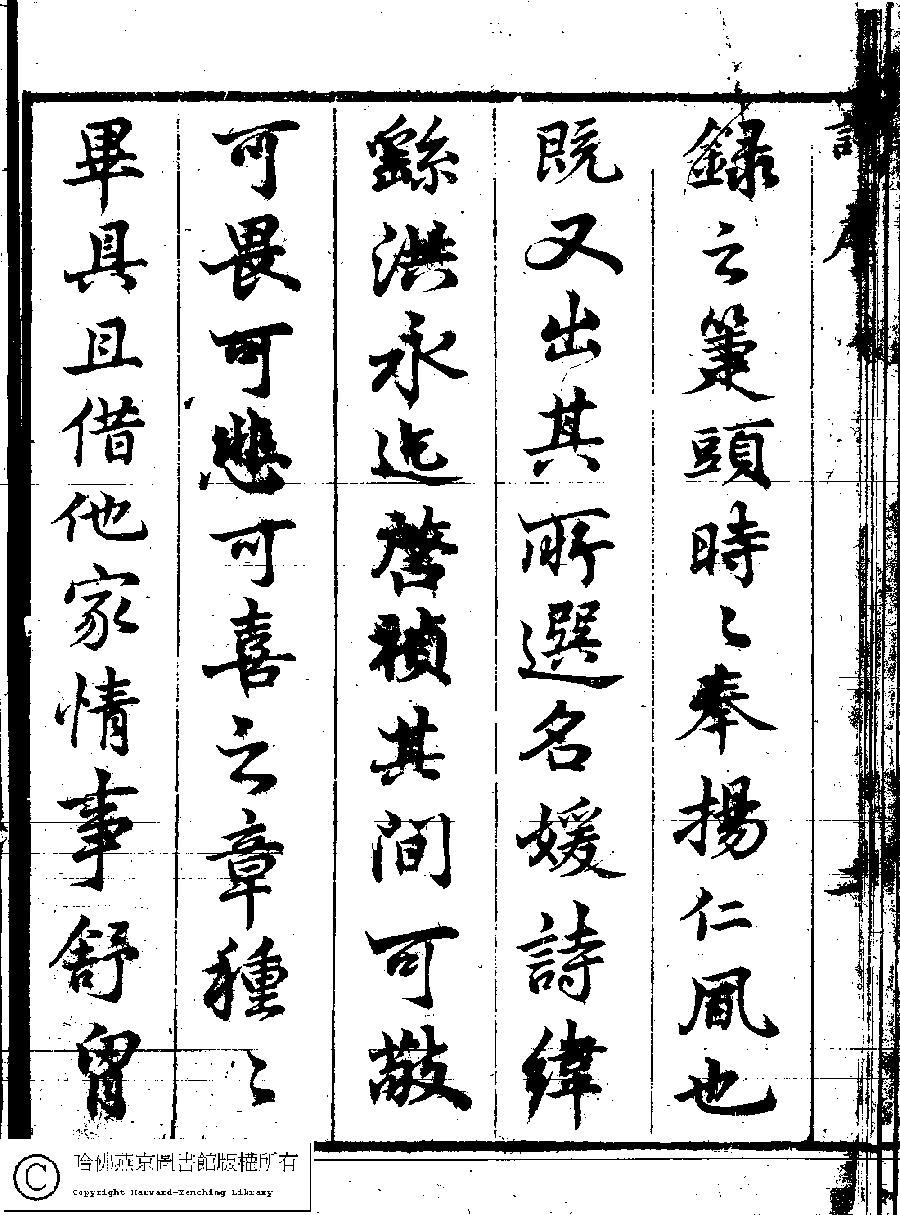 錄之箑頭時〻奉揚仁風也
既又出其所選名媛詩緯
繇洪永迄啓禎其間可敬
可畏可悲可喜之章種〻
畢具且借他家情事舒胷
哈佛燕京圖書館版權所有
Copyright Harvard-Yenching Library